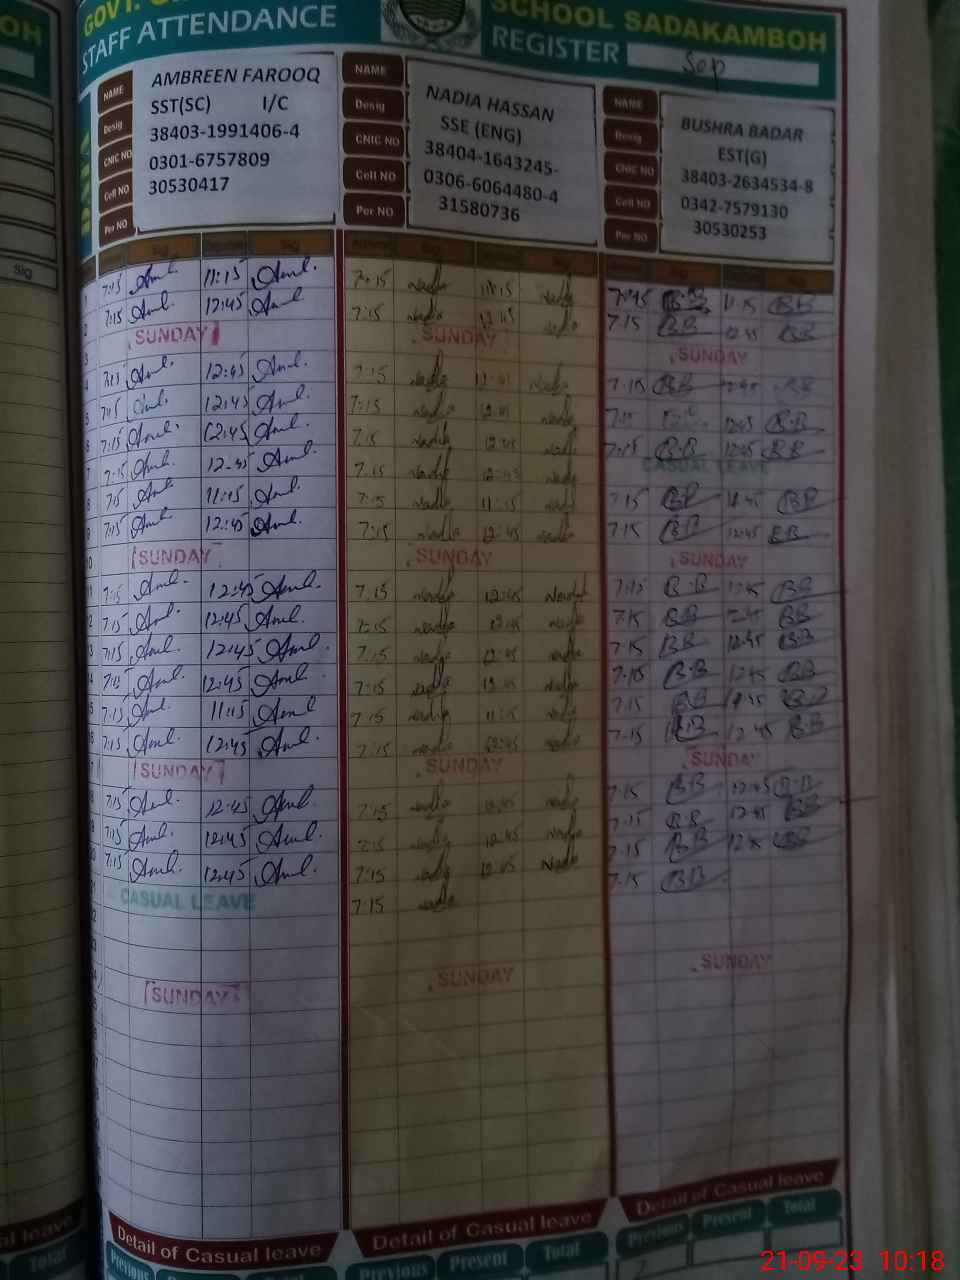 GOVT.
SCHOOL SADAKAMBOH
STAFF ATTENDANCE
REGISTER Sep
NAME
Desig
CNIC NO
Cell NO
Per NO
AMBREEN FAROOQ
SST(SC) I/C
38403-1991406-4
0301-6757809
30530417
NAME
Desig
CNIC NO
Cell NO
Per NO
NADIA HASSAN
SSE (ENG)
38404-1643245-
0306-6064480-4
31580736
NAME
Desig
CNIC NO
Cell NO
Per NO
BUSHRA BADAR
EST(G)
38403-2634534-8
0342-7579130
30530253
Sig
Sig
Sig
7:15 11:15
7:15 12:45
SUNDAY
7:15 12:45
7:15 12:45
7:15 12:45
7:15 12:45
7:15 11:15
7:15 12:45
SUNDAY
7:15 12:45
7:15 12:45
7:15 12:45
7:15 12:45
7:15 11:15
7:15 12:45
SUNDAY
7:15 12:45
7:15 12:45
7:15 12:45
CASUAL LEAVE
SUNDAY
7:15 Nadia 11:15 Nadia
7:15 Nadia 12:45 Nadia
SUNDAY
7:15 Nadia 12:45 Nadia
7:15 Nadia 12:45 Nadia
7:15 Nadia 12:45 Nadia
7:15 Nadia 12:45 Nadia
7:15 Nadia 11:15 Nadia
7:15 Nadia 12:45 Nadia
SUNDAY
7:15 Nadia 12:45 Nadia
7:15 Nadia 12:45 Nadia
7:15 Nadia 12:45 Nadia
7:15 Nadia 12:45 Nadia
7:15 Nadia 11:15 Nadia
7:15 Nadia 12:45 Nadia
SUNDAY
7:15 Nadia 12:45 Nadia
7:15 Nadia 12:45 Nadia
7:15 Nadia 12:45 Nadia
7:15 Nadia
SUNDAY
BB 11:15 BB
7:15 BB 12:45 BB
SUNDAY
7:15 BB 12:45 BB
7:15 12:45 BB
7:15 BB 12:45 BB
CASUAL LEAVE
7:15 BB BB
7:15 BB 12:45 BB
SUNDAY
7:15 BB 12:45 BB
7:15 BB 12:45 BB
7:15 BB 12:45 BB
7:15 BB 12:45 BB
7:15 BB BB
7:15 BB 12:45 BB
SUNDAY
7:15 BB 12:45 BB
7:15 BB 12:45 BB
7:15 BB 12:45 BB
7:15 BB
SUNDAY
Detail of Casual leave
Previous
Detail of Casual leave
Previous Present Total
Detail of Casual leave
Previous Present Total
al leave
Total
21-09-23 10:18